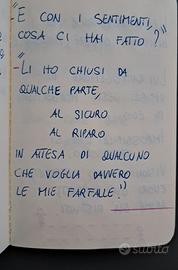 "E CON I SENTIMENTI,
COSA CI HAI FATTO?"
"
- LI HO CHIUSI DA
QUALCHE PARTE,
AL SICURO
AL RIPARO
IN ATTESA DI QUALCUNO
CHE VOGLIA DAVVERO
LE MIE FARFALLE."
subito